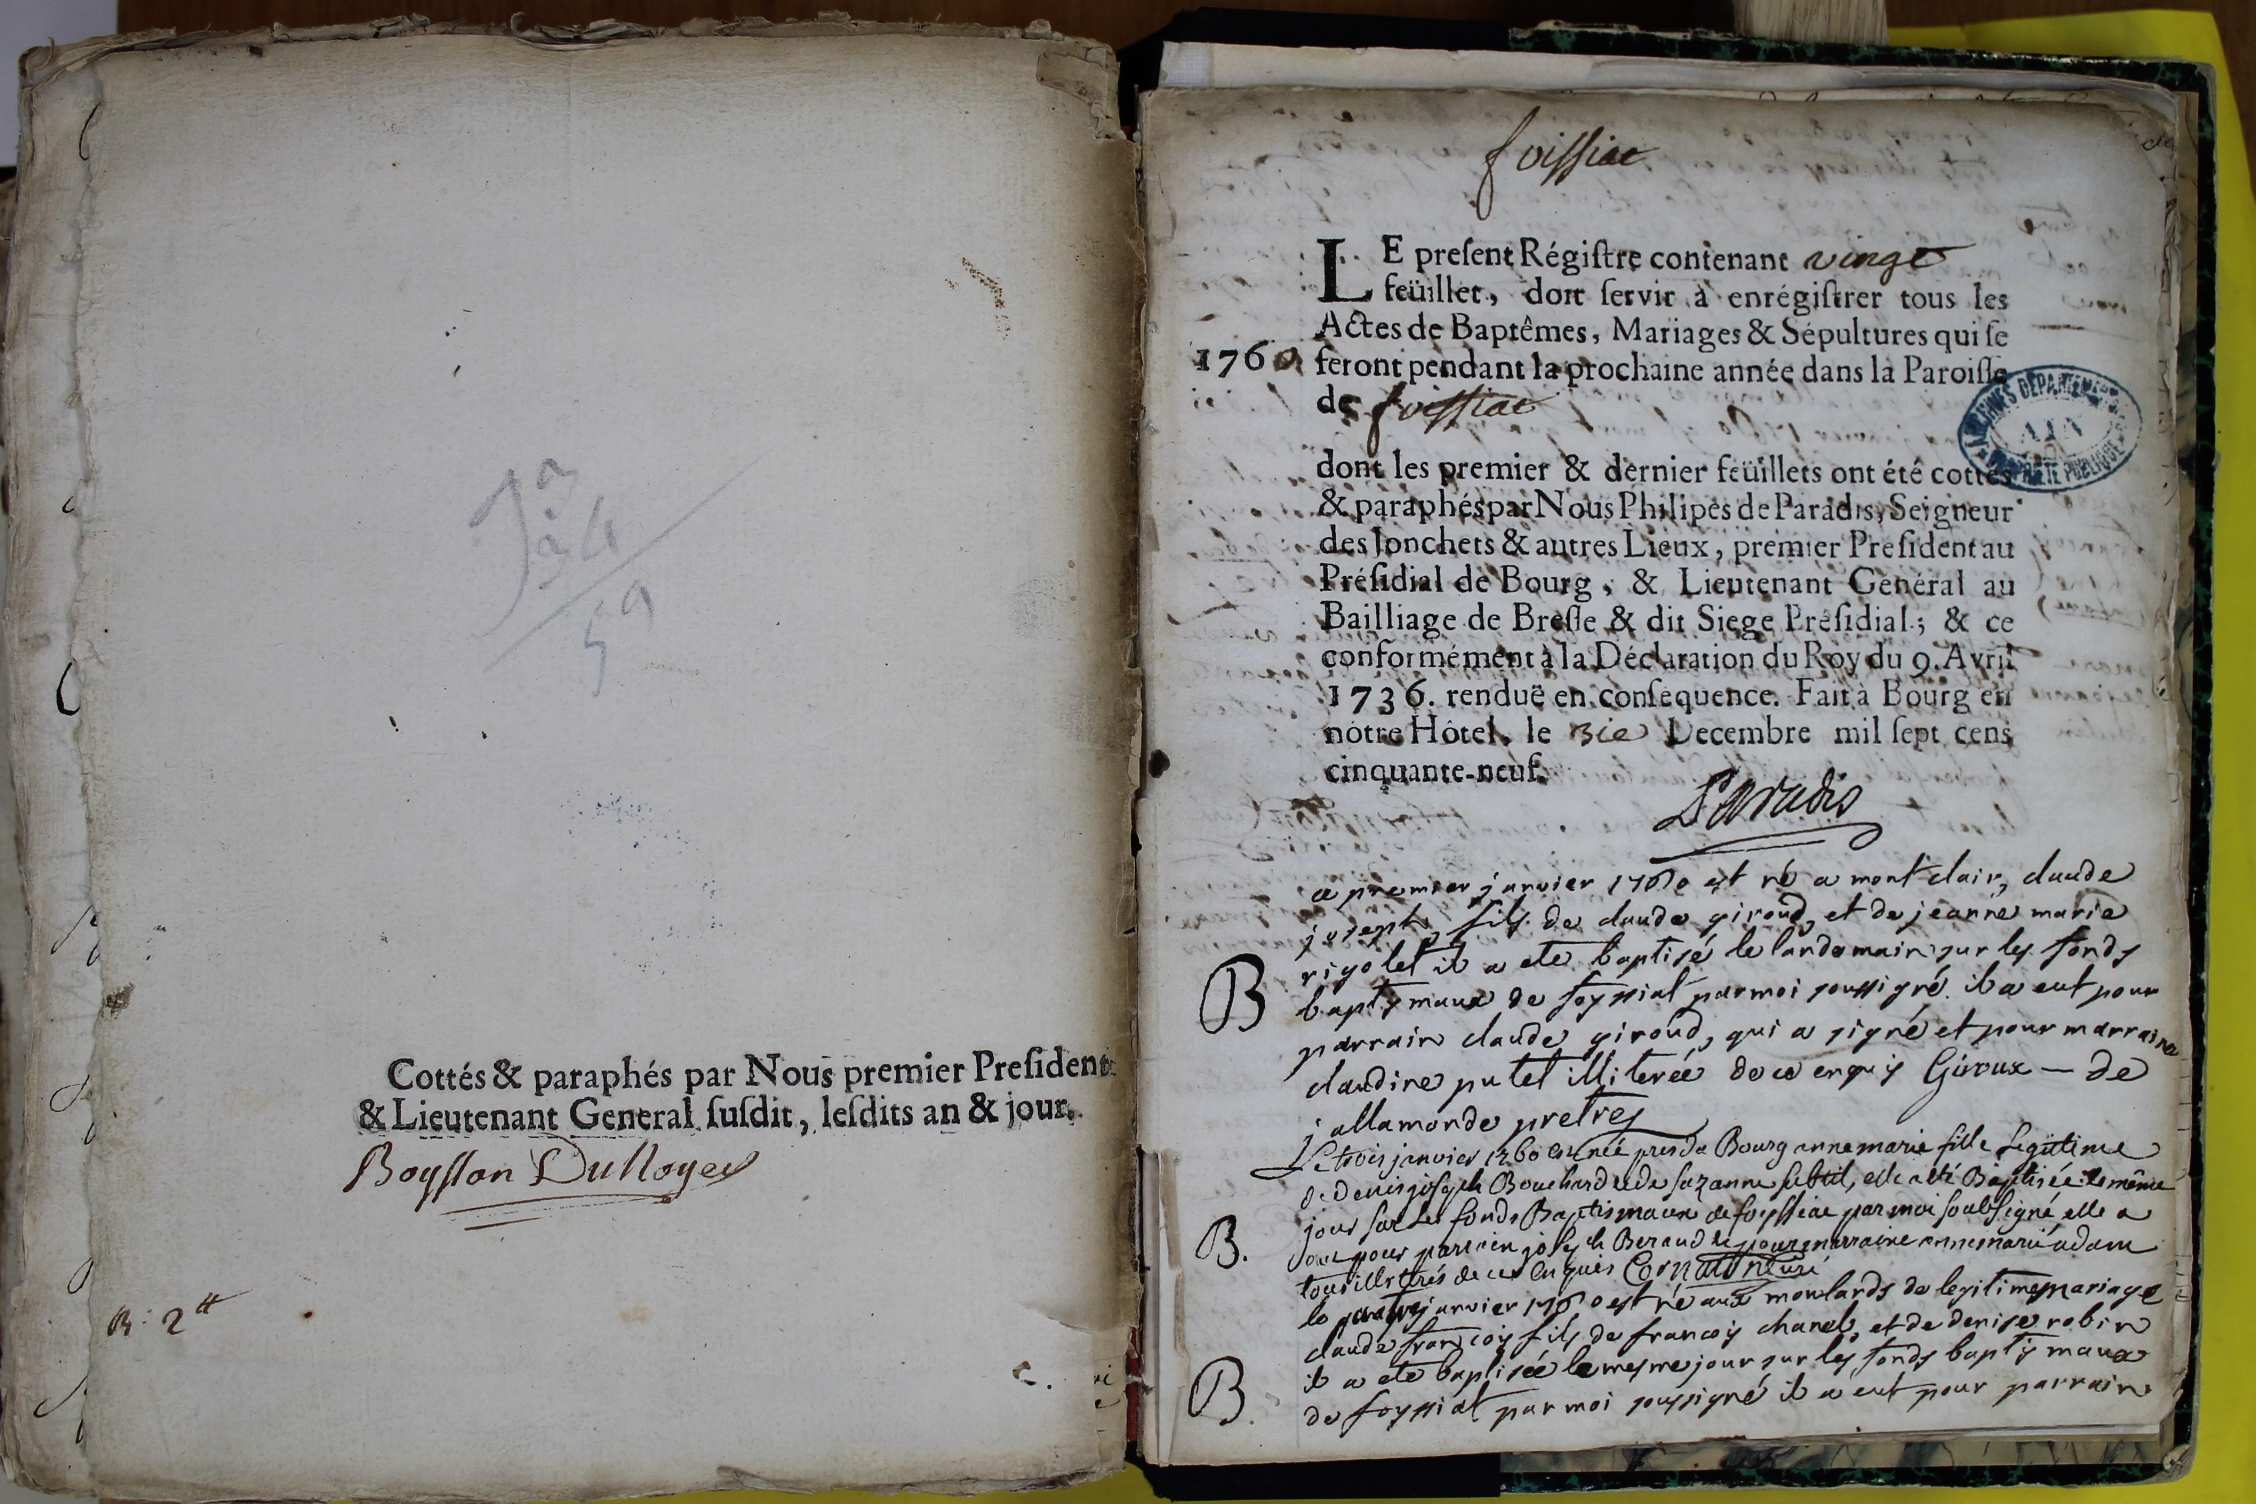 Cottés & paraphés par Nous premier President
& Lieutenant General susdit, lesdits an & jour.
Boysson Dunoyer
B: 2tt
foissiac
LE present Régistre contenant vingt
feüillet, doit servir à enrégistrer tous les
Actes de Baptêmes, Mariages & Sépultures qui se
1760
feront pendant la prochaine année dans la Paroisse
de foissiac
ARCHIVES DEPARTEMENTALES
AIN
PROPRIETE PUBLIQUE
dont les premier & dernier feüillets ont été cottés
& paraphés par Nous Philipes de Paradis, Seigneur
des Jonchets & autres Lieux, premier President au
Présidial de Bourg, & Lieutenant Général au
Bailliage de Bresse & dit Siege Présidial; & ce
conformément à la Déclaration du Roy du 9. Avril
1736. renduë en conséquence. Fait à Bourg en
nôtre Hôtel, le 3ie Decembre mil sept cens
cinquante-neuf.
Paradis
ce premier janvier 1760 est né a mont clair, claude
joseph, fils de claude giroud, et de jeanne marie
rigolet il a ete baptisé le landemain sur les fonds
B
baptismaux de foyssiat par moi soussigné il a eut pour
parrain claude giroud, qui a signé et pour marraine
claudine putel illiterée de ce enquis Giroux — de
jallamonde pretres
Le trois janvier 1760 est née pres de Bourg anne marie fille legitime
de denis joseph Bouchard et de suzanne subtil, elle a été Baptisée le même
jour sur les fonds Baptismaux de foyssiac par moi soubsigné elle a
B.
eut pour parrain joseph Beraud et pour marraine anne marie adam
tous illiterés de ce enquis Cornaton curé
le quatre janvier 1760 est né aux moulards de legitime mariage
claude françois fils de francois chanel, et de denise robin
il a ete baptisée le mesme jour sur les fonds baptismaux
B.
de foyssiat par moi soussigné il a eut pour parrain